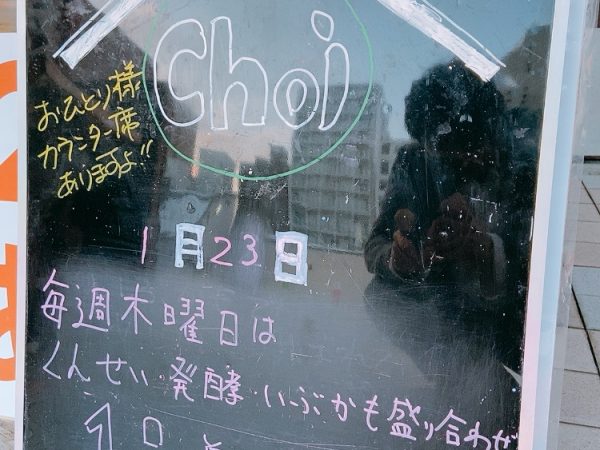 Choi
おひとり様
カウンター席
ありますよ!!
1月23日
毎週木曜日は
くんせい・発酵・いぶかも盛り合わせ